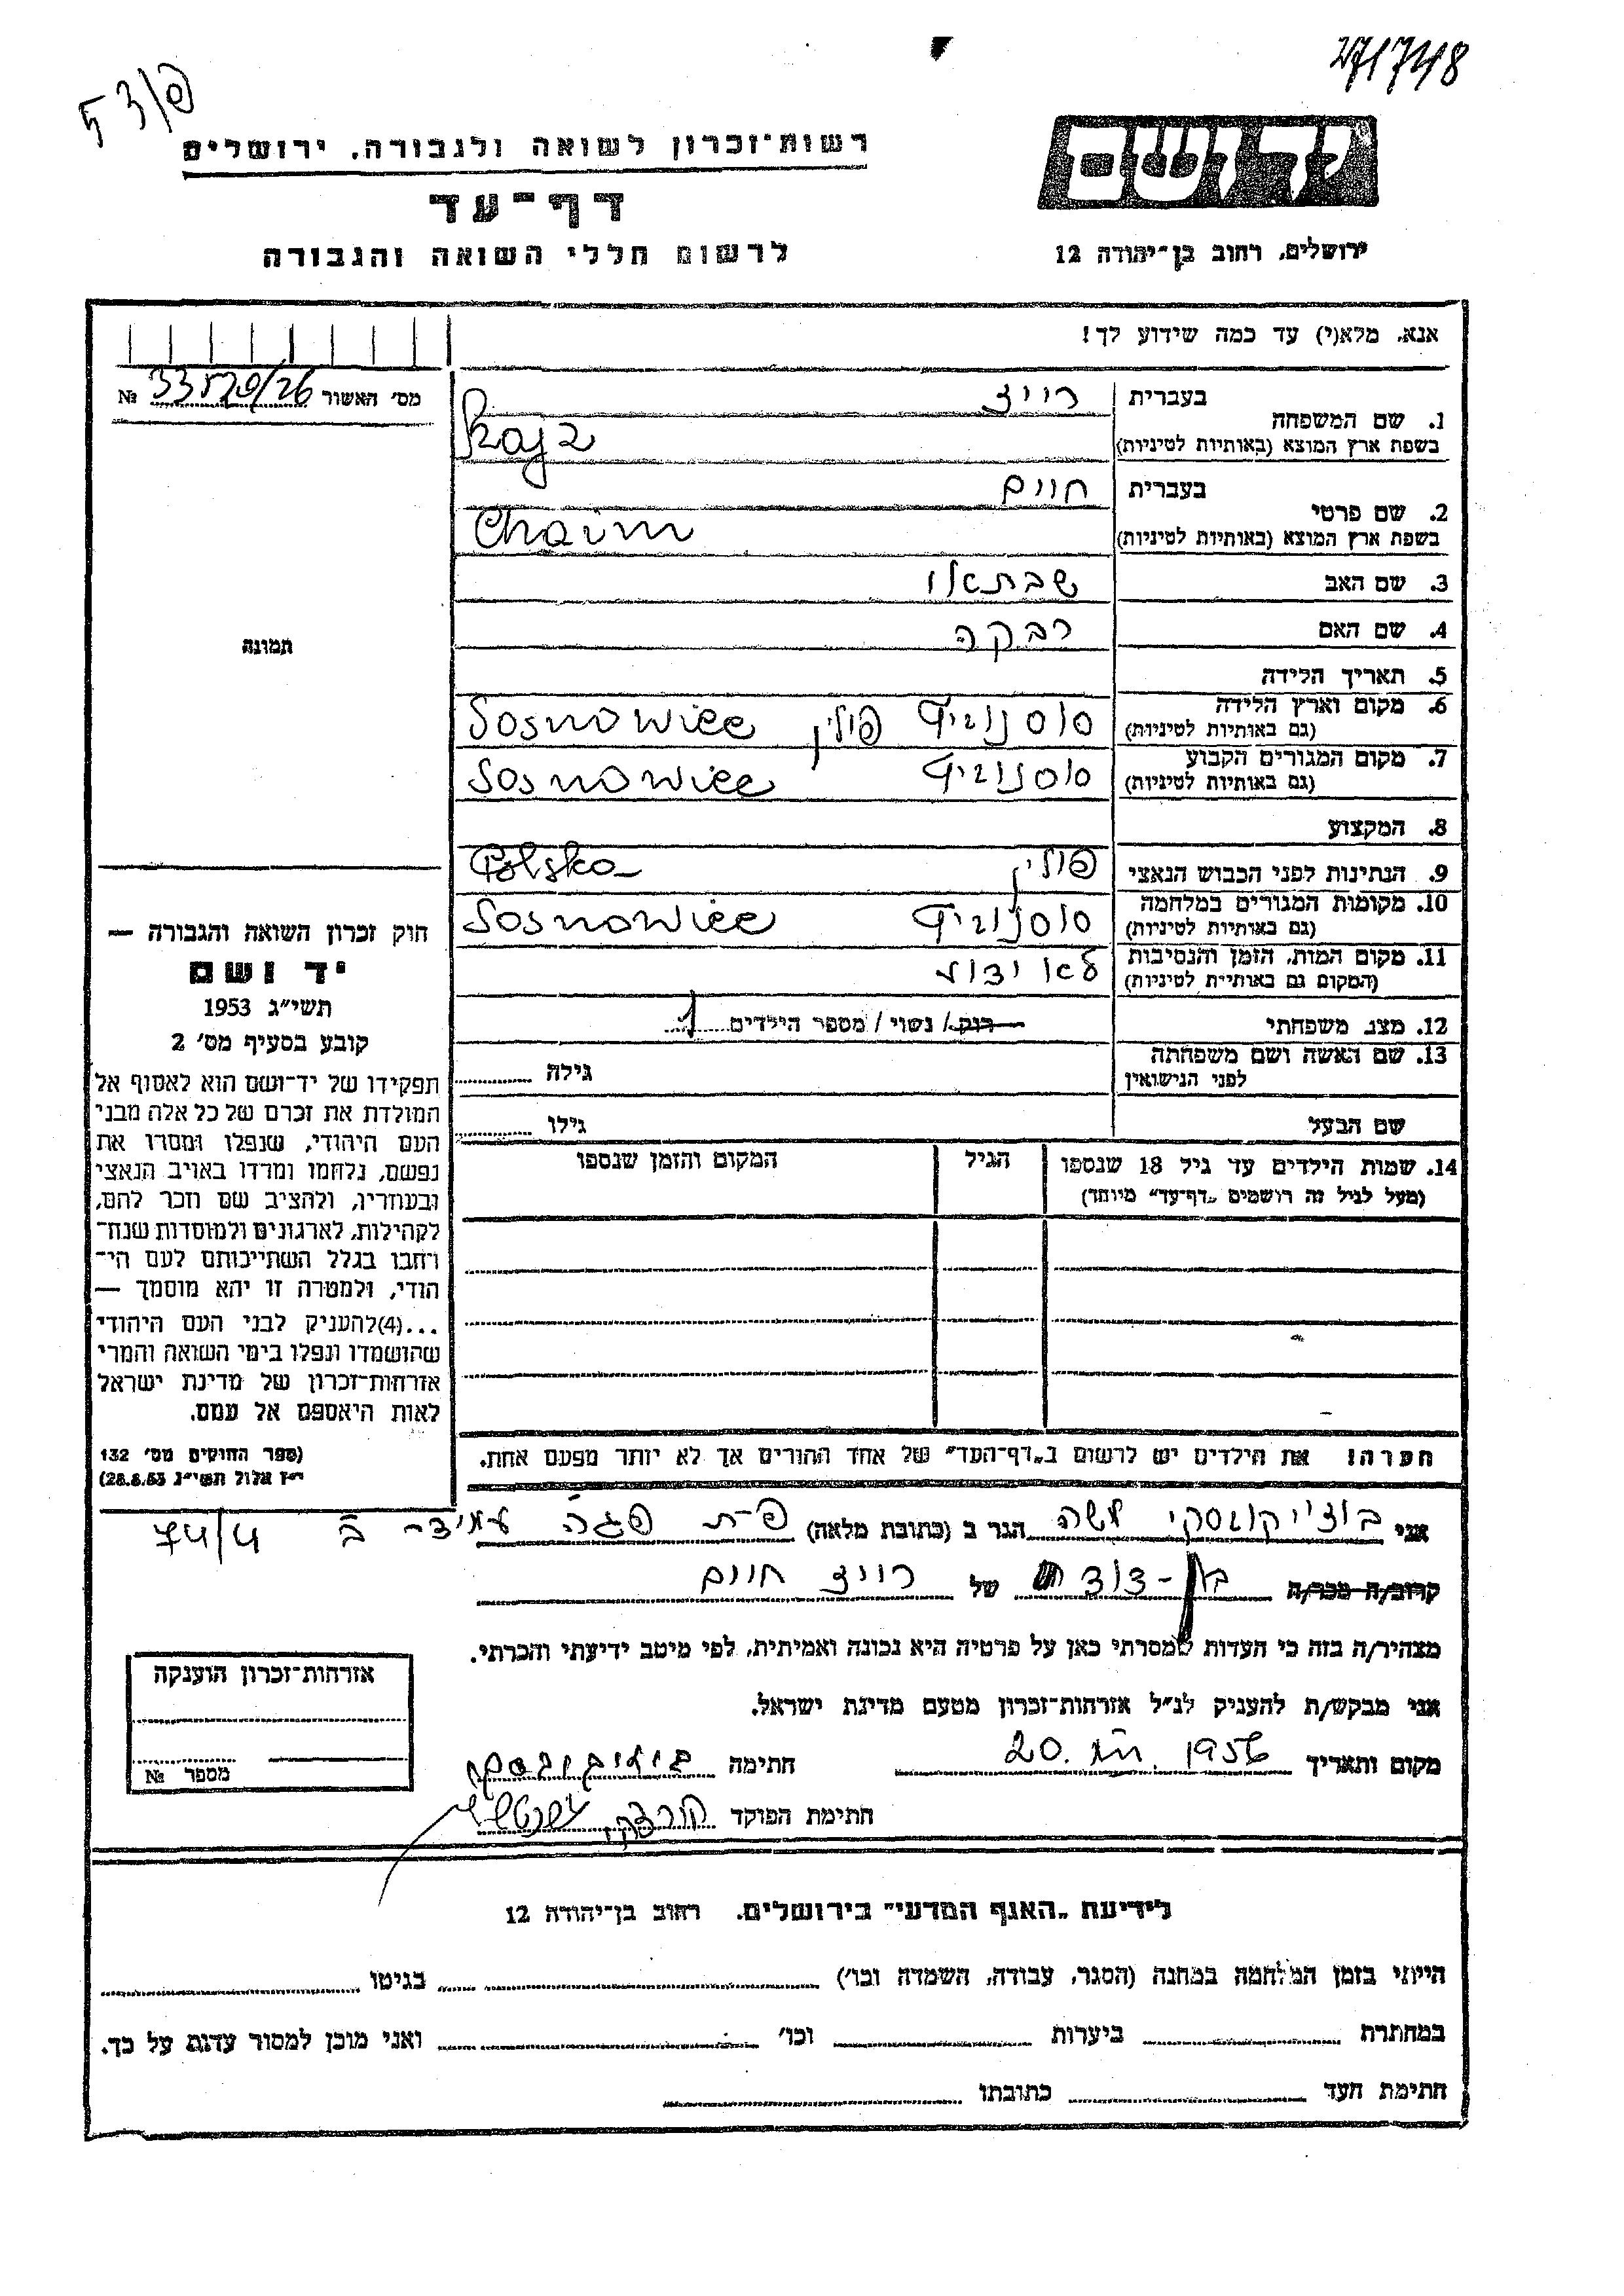 271748
פ/53
יד ושם
רשות־זכרון לשואה ולגבורה, ירושלים
דף־עד
לרשום חללי השואה והגבורה
ירושלים, רחוב בן־יהודה 12
אנא, מלא(י) עד כמה שידוע לך!
מס׳ האשור № 33520/26
תמונה
חוק זכרון השואה והגבורה —
יד ושם
תשי״ג 1953
קובע בסעיף מס׳ 2
תפקידו של יד־ושם הוא לאסוף אל
המולדת את זכרם של כל אלה מבני
העם היהודי, שנפלו ומסרו את
נפשם, נלחמו ומרדו באויב הנאצי
ובעוזריו, ולהציב שם וזכר להם,
לקהילות, לארגונים ולמוסדות שנח־
רחבו בגלל השתייכותם לעם הי־
הודי, ולמטרה זו יהא מוסמך —
...(4)להעניק לבני העם היהודי
שהושמדו ונפלו בימי השואה והמרי
אזרחות־זכרון של מדינת ישראל
לאות היאספם אל עמם.
(ספר החוקים מס׳ 132
י״ז אלול תשי״ג 28.8.53)
1. שם המשפחה בעברית רייז
בשפת ארץ המוצא (באותיות לטיניות) Rajz
2. שם פרטי בעברית חיים
בשפת ארץ המוצא (באותיות לטיניות) Chaim
3. שם האב שבתאי
4. שם האם רבקה
5. תאריך הלידה
6. מקום וארץ הלידה סוסנוביץ פולין Sosnowiec
(גם באותיות לטיניות)
7. מקום המגורים הקבוע סוסנוביץ Sosnowiec
(גם באותיות לטיניות)
8. המקצוע
9. הנתינות לפני הכבוש הנאצי פולין Polska
10. מקומות המגורים במלחמה סוסנוביץ Sosnowiec
(גם באותיות לטיניות)
11. מקום המות, הזמן והנסיבות לא ידוע
(המקום גם באותיית לטיניות)
12. מצב משפחתי רווק/ נשוי/ מספר הילדים 1
13. שם האשה ושם משפחתה גילה
לפני הנישואין
שם הבעל גילו
14. שמות הילדים עד גיל 18 שנספו הגיל המקום והזמן שנספו
(מעל לגיל זה רושמים „דף־עד״ מיוחד)
הערה! את הילדים יש לרשום ב„דף־העד״ של אחד ההורים אך לא יותר מפעם אחת.
אני משה הגר ב (כתובת מלאה) פ-ת 74/4
קרוב/ה מכר/ה בן-דוד של רייז חיים
מצהיר/ה בזה כי העדות שמסרתי כאן על פרטיה היא נכונה ואמיתית, לפי מיטב ידיעתי והכרתי.
אני מבקש/ת להעניק לנ״ל אזרחות־זכרון מטעם מדינת ישראל.
מקום ותאריך 20. 1956 חתימה
חתימת הפוקד
אזרחות־זכרון הוענקה
מספר №
לידיעת „האגף המדעי״ בירושלים, רחוב בן־יהודה 12
הייתי בזמן המלחמה במחנה (הסגר, עבודה, השמדה וכו׳) בגיטו
במחתרת ביערות וכו׳ ואני מוכן למסור עדות על כך.
חתימת העד כתובתו